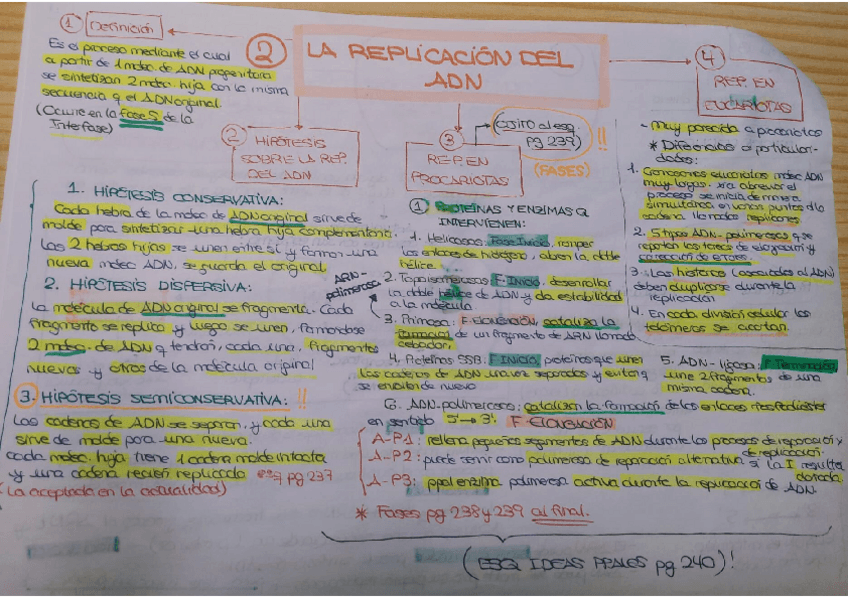 2 LA REPLICACIÓN DEL
ADN
1 Definición
Es el proceso mediante el cual
a partir de 1 molec. de ADN progenitora
se sintetizan 2 molec. hija con la misma
secuencia q el ADN original.
(Ocurre en la fase S de la
Interfase)
2 HIPÓTESIS
SOBRE LA REP.
DEL ADN
1. HIPÓTESIS CONSERVATIVA:
Cada hebra de la molec de ADN original sirve de
molde para sintetizar una hebra hija complementaria
Las 2 hebras hijas se unen entre sí y forman una
nueva molec ADN, se guarda el original
2. HIPÓTESIS DISPERSIVA:
La molécula de ADN original se fragmenta. Cada
fragmento se replica y luego se unen, formándose
2 molec. de ADN q tendrán, cada una, fragmentos
nuevos y otros de la molécula original
3. HIPÓTESIS SEMICONSERVATIVA: !!
Las cadenas de ADN se separan, y cada una
sirve de molde para una nueva.
cada molec. hija tiene 1 cadena molde intacta
y una cadena recién replicada pg 237
(La aceptada en la actualidad)
3 REP. EN
PROCARIOTAS
pg 239) !!
(FASES)
1 PROTEÍNAS Y ENZIMAS Q
INTERVIENEN:
1. Helicasas: Fase Inicio, rompen
los enlaces de hidrógeno, abren la doble
hélice.
2. Topoisomerasas: F-INICIO, desenrollar
la doble hélice de ADN y da estabilidad
a la molécula
ARN-
polimerasa
3. Primasa: F-ELONGACIÓN, cataliza la
formación de un fragmento de ARN llamado
cebador.
4. Proteínas SSB: F INICIO, proteínas que unen
las cadenas de ADN una vez separadas y evitan q
se enrollen de nuevo
5. ADN-ligasa: F Terminación,
une 2 fragmentos de una
misma cadena.
6. ADN-polimerasa: catalizan la formación de los enlaces fosfodiéster
en sentido 5'→3'. F-ELONGACIÓN
A-P1: rellena pequeños segmentos de ADN durante los procesos de reparación y
de replicación.
A-P2: puede servir como polimerasa de reparación alternativa si la I resulta
dañada.
A-P3: ppal enzima polimerasa activa durante la replicación de ADN.
* Fases pg 238 y 239 al final.
4 REP. EN
EUCARIOTAS
- Muy parecida a procariotas
* Diferencias o particulari-
dades:
1. Genomas eucariotas molec ADN
muy largas, xa abreviar el
proceso se inicia de manera
simultánea en varios puntos d la
cadena llamados replicones
2. 5 tipos ADN-polimerasas q se
reparten las tareas de elongación y
corrección de errores
3. Las histonas (asociadas al ADN)
deben duplicarse durante la
replicación
4. En cada división celular los
telómeros se acortan
(ESQ IDEAS PPALES pg 240)!